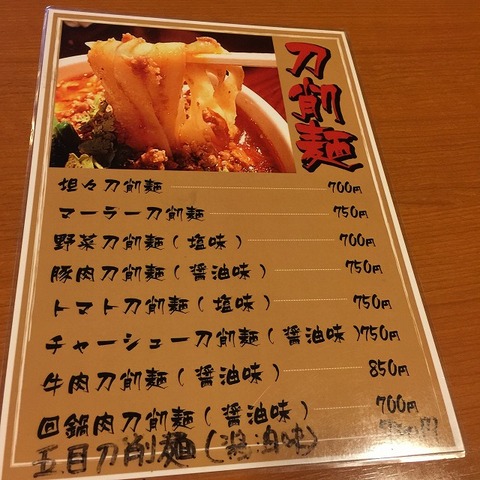 刀削麺
坦々刀削麺 700円
マーラー刀削麺 750円
野菜刀削麺(塩味) 700円
豚肉刀削麺(醤油味) 750円
トマト刀削麺(塩味) 750円
チャーシュー刀削麺(醤油味) 750円
牛肉刀削麺(醤油味) 850円
回鍋肉刀削麺(醤油味) 700円
五目刀削麺(醤油味)